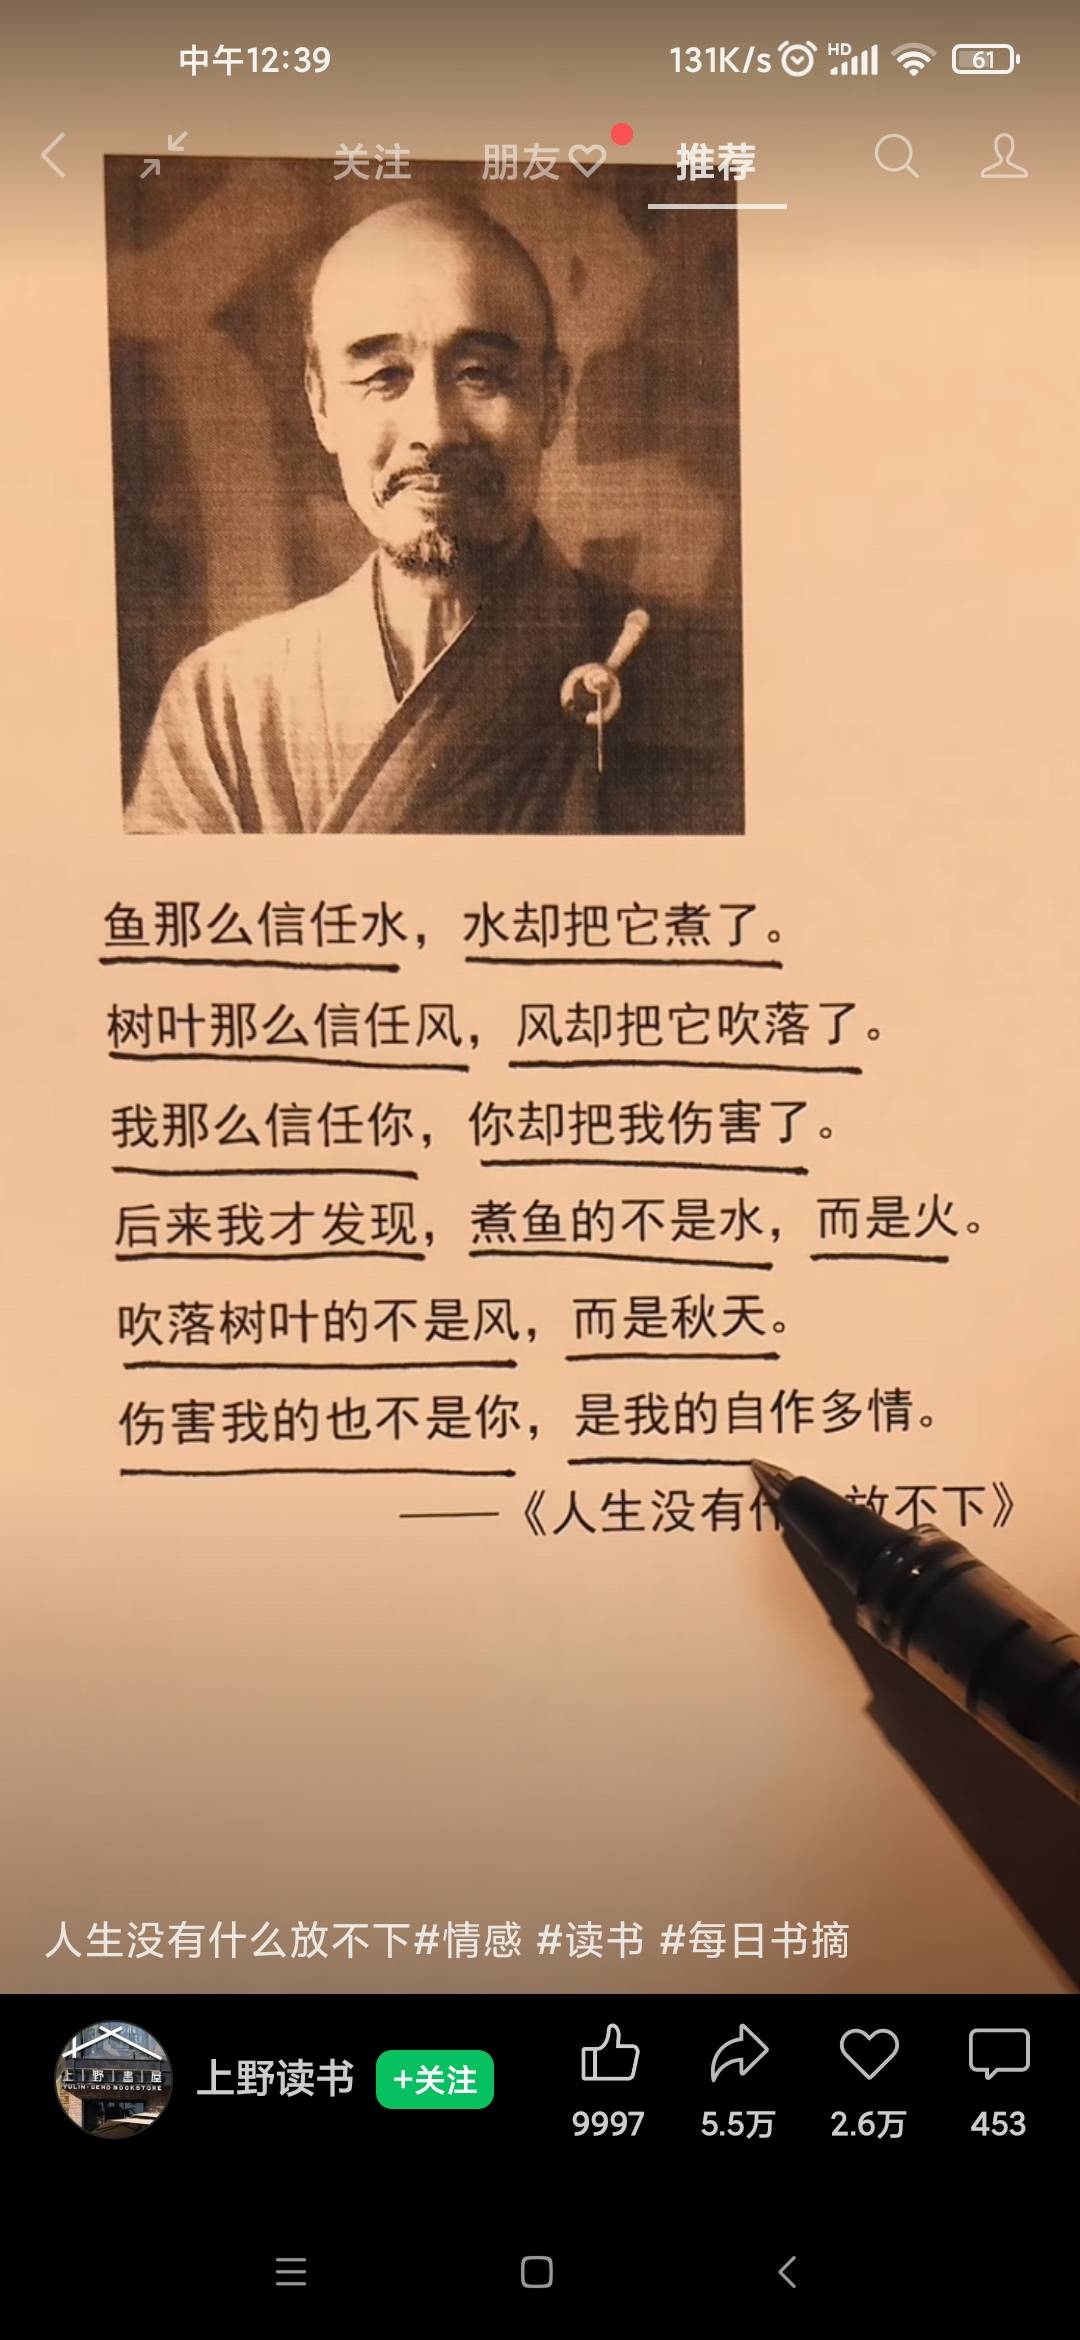 中午12:39
131K/s HD 61
关注 朋友 推荐
鱼那么信任水，水却把它煮了。
树叶那么信任风，风却把它吹落了。
我那么信任你，你却把我伤害了。
后来我才发现，煮鱼的不是水，而是火。
吹落树叶的不是风，而是秋天。
伤害我的也不是你，是我的自作多情。
——《人生没有 放不下》
人生没有什么放不下#情感 #读书 #每日书摘
上野書屋
上野读书 +关注
9997 5.5万 2.6万 453